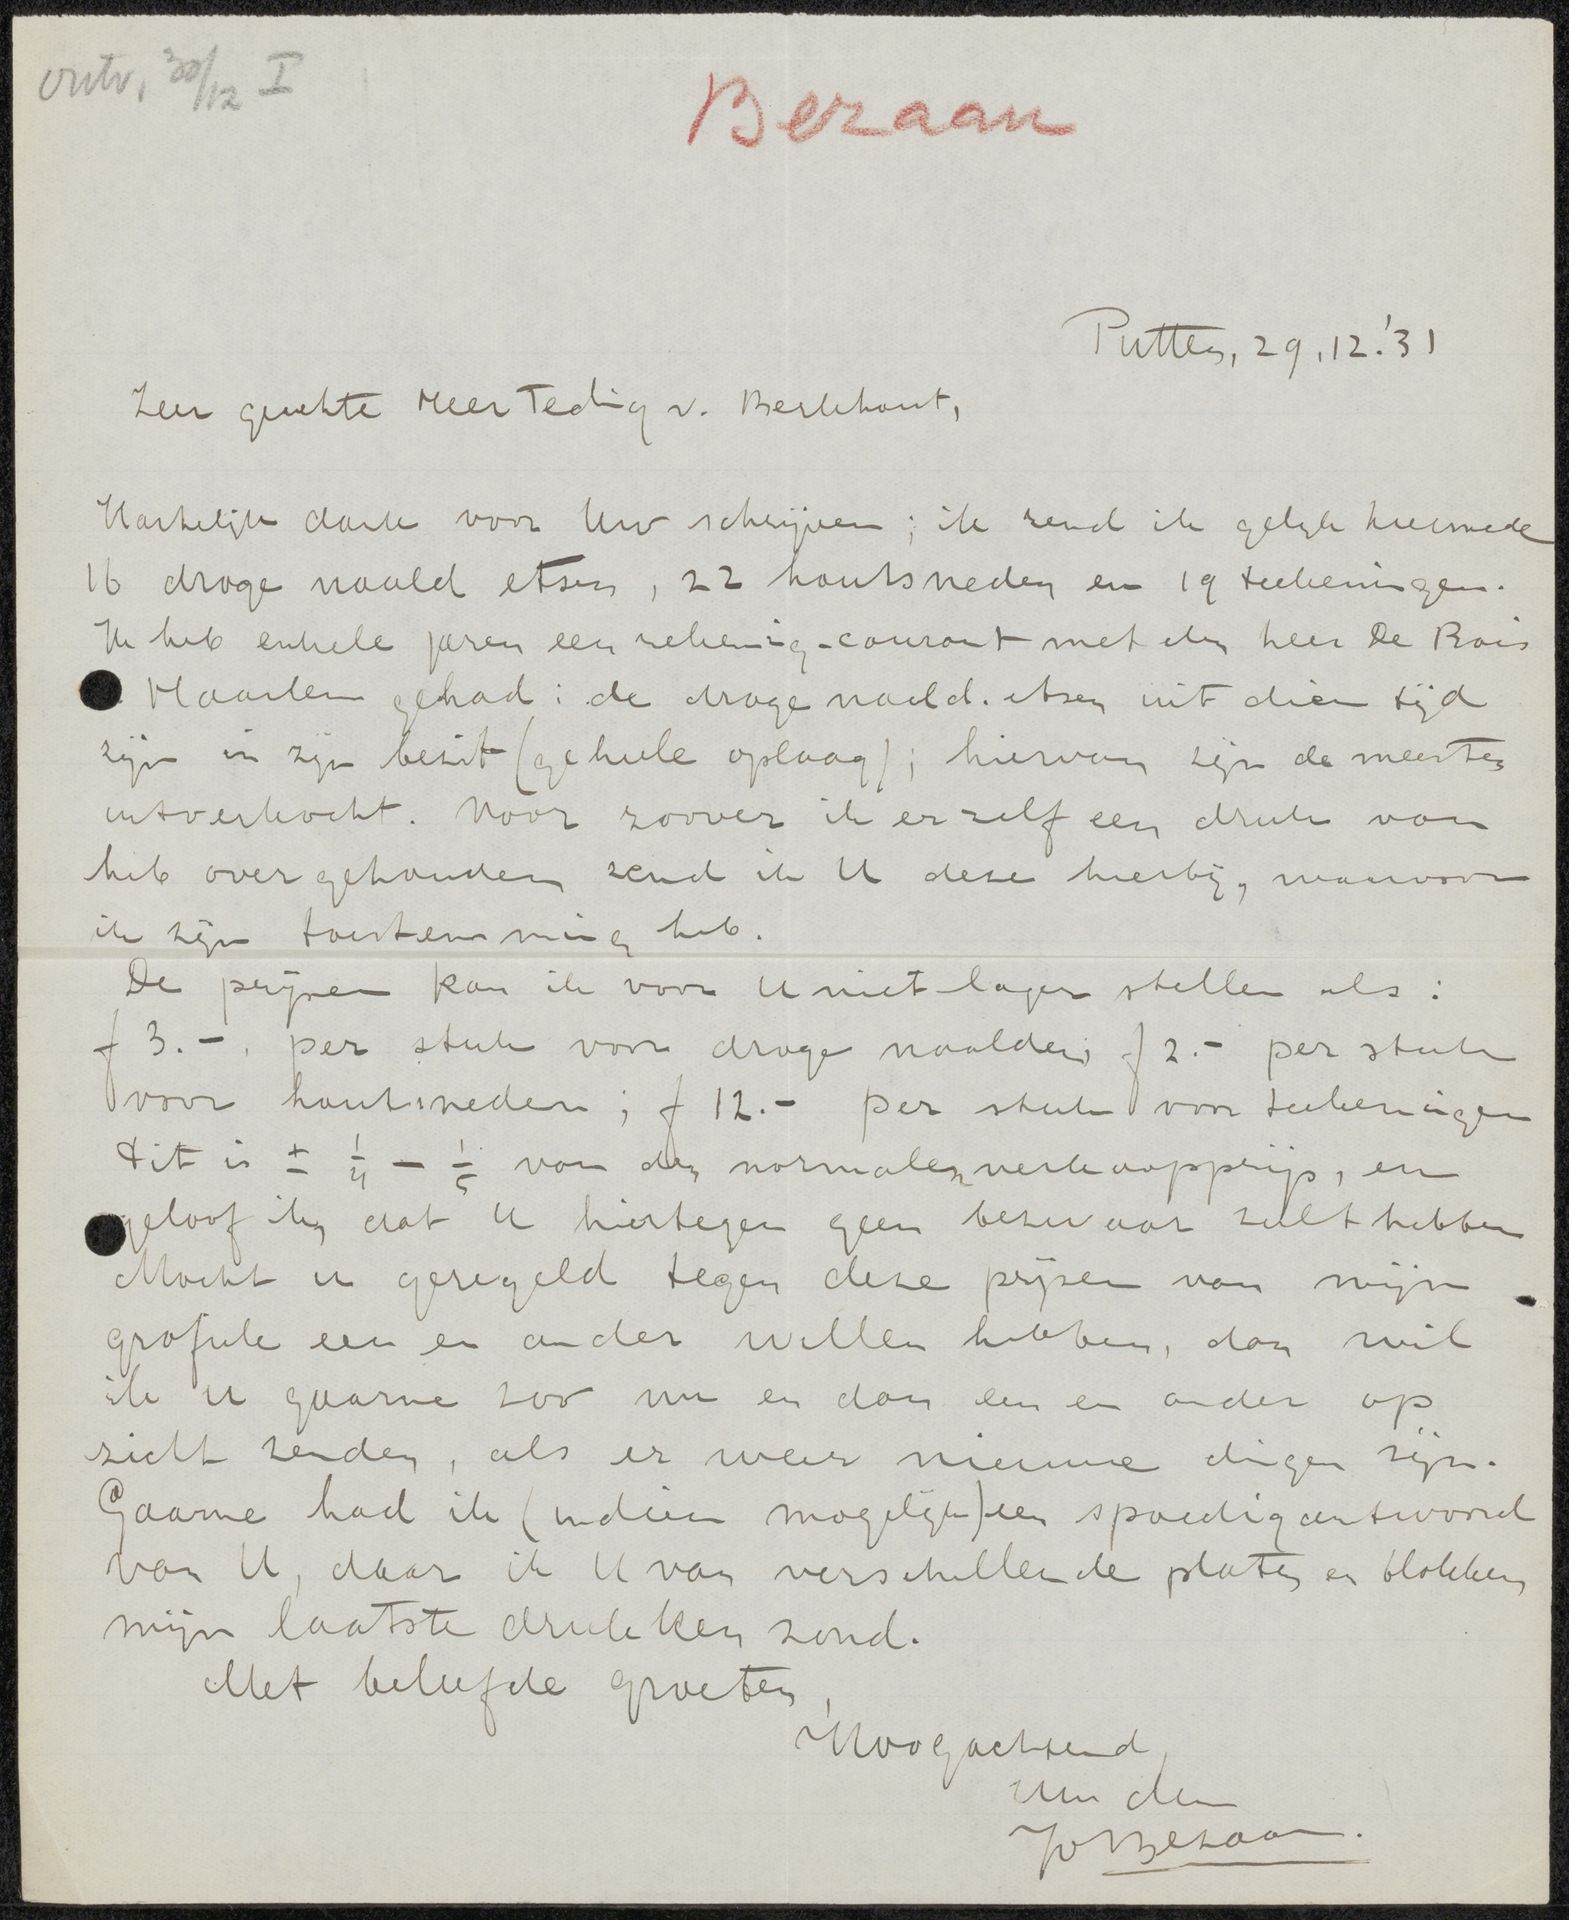 ontv, 30/12 I
Bezaan
Putten, 29.12.'31
Zeer geachte Heer Teding v. Berkhout,
Hartelijk dank voor Uw schrijven; ik zend ik gelijk hiermede
16 droge naald etsen, 22 houtsneden en 19 teekeningen.
Ik heb enkele jaren een rekening-courant met den heer De Bois
Haarlem gehad: de droge naald. etsen uit dien tijd
zijn in zijn bezit (geheele oplaag); hiervan zijn de meesten
uitverkocht. Voor zoover ik er zelf een druk van
heb overgehouden zend ik U deze hierbij, waarvoor
ik zijn toestemming heb.
De prijzen kan ik voor U niet lager stellen als:
f 3.- per stuk voor droge naalden; f 2.- per stuk
voor houtsneden; f 12.- per stuk voor teekeningen
dit is ± 1/4 - 1/5 van den normalen verkoopprijs, en
geloof ik, dat U hiertegen geen bezwaar zult hebben
Mocht U geregeld tegen deze prijzen van mijn
grafiek een en ander willen hebben, dan wil
ik U gaarne zoo nu en dan een en ander op
zicht zenden, als er weer nieuwe dingen zijn.
Gaarne had ik (indien mogelijk) een spoedig antwoord
van U, daar ik U van verschillende platen en blokken
mijn laatste drukken zond.
Met beleefde groeten,
Hoogachtend,
Uw dw
Jo Bezaan.